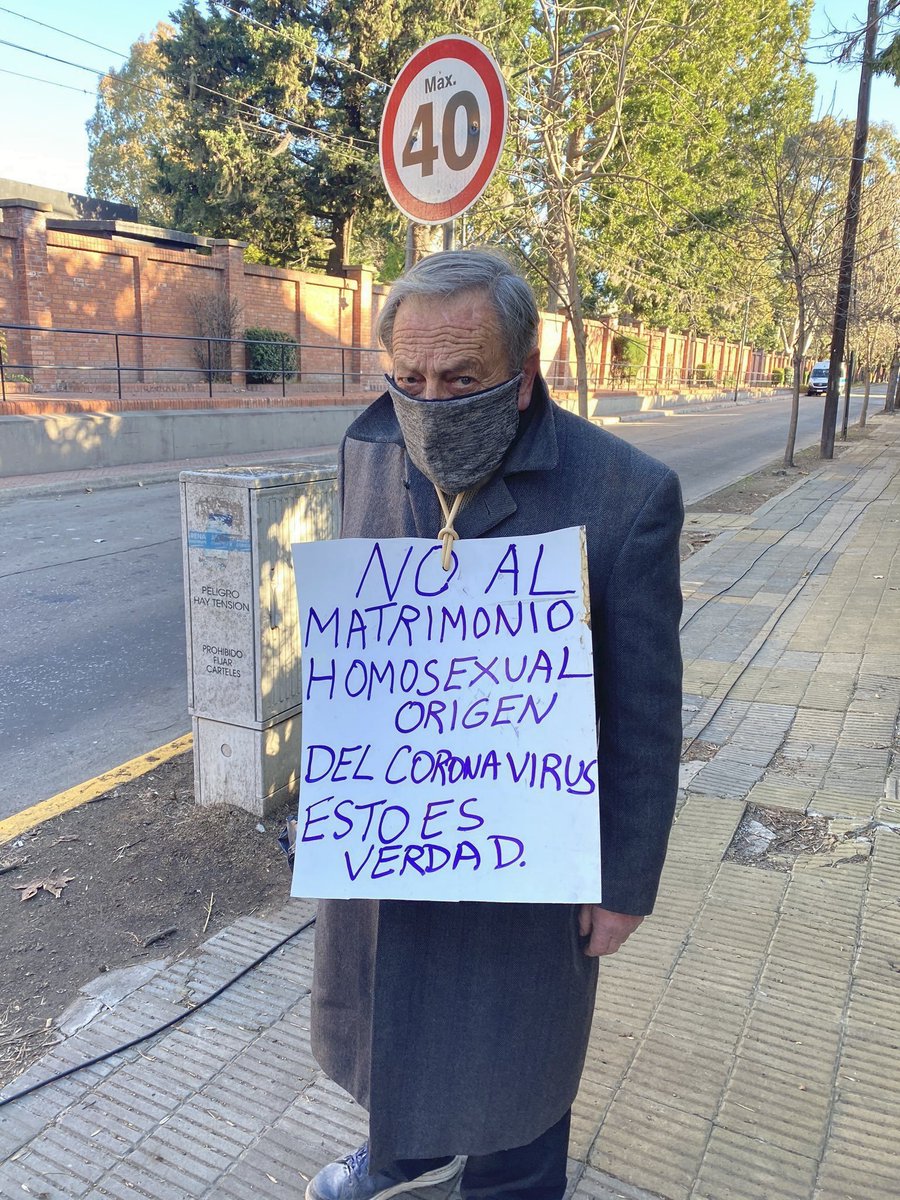 Máx.
40
PELIGRO
HAY TENSION
PROHIBIDO
FIJAR
CARTELES
NO AL
MATRIMONIO
HOMOSEXUAL
ORIGEN
DEL CORONAVIRUS
ESTO ES
VERDAD.